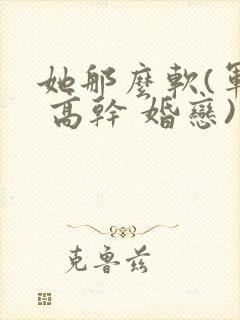 她那麼軟(軍
高幹 婚戀)
克鲁兹